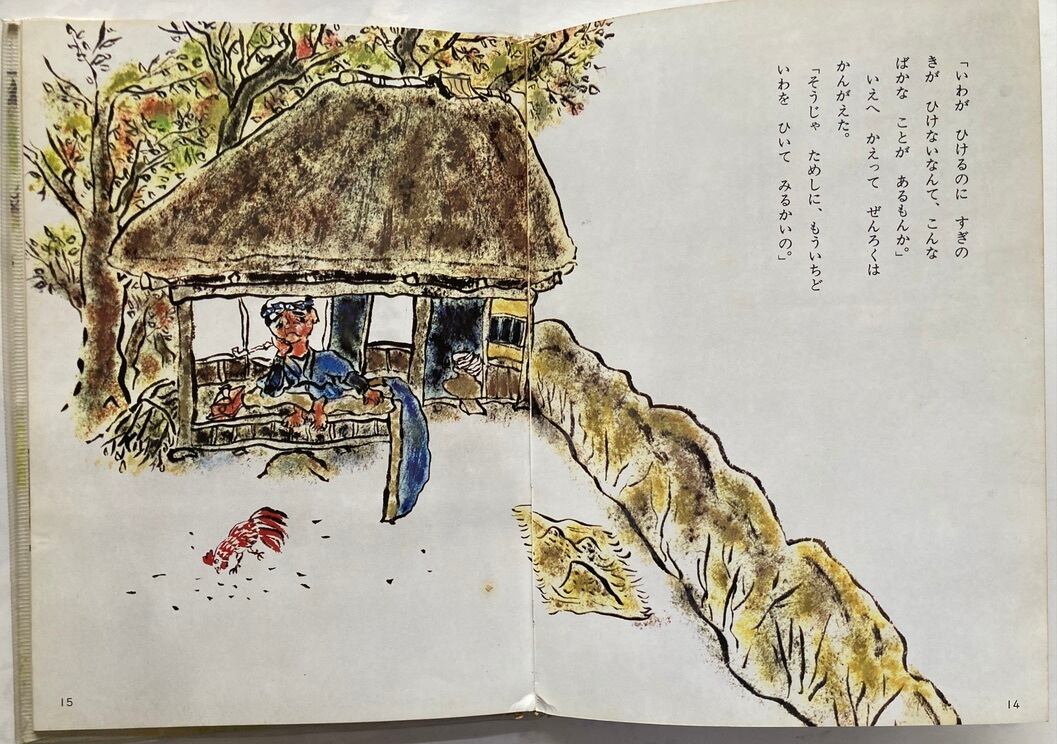 「いわが　ひけるのに　すぎの
きが　ひけないなんて、こんな
ばかな　ことが　あるもんか。」
　いえへ　かえって　ぜんろくは
かんがえた。
「そうじゃ　ためしに、もういちど
いわを　ひいて　みるかいの。」
14
15